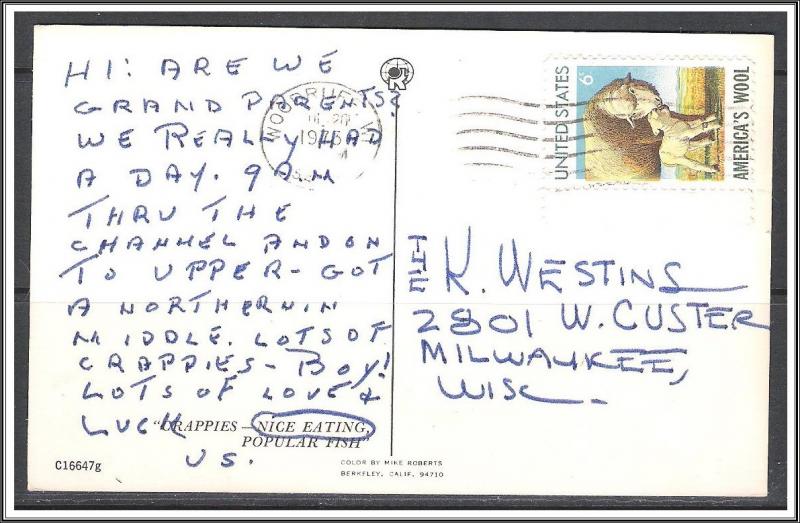 HI: ARE WE
GRAND PARENTS?
WE REALLY HAD
A DAY. 9 A.M
THRU THE
CHANNEL AND ON
TO UPPER - GOT
A NORTHERN IN
MIDDLE. LOTS OF
CRAPPIES - BOY!
LOTS OF LOVE &
LUCK
US.
"CRAPPIES — NICE EATING,
POPULAR FISH"
C16647g
COLOR BY MIKE ROBERTS
BERKELEY, CALIF. 94710
WOODRUFF, WI
1973
UNITED STATES 6¢
AMERICA'S WOOL
THE K. WESTINS
2801 W. CUSTER
MILWAUKEE,
WISC.